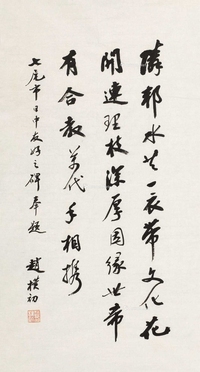 隣邦水共一衣帶文化花
開連理枝深厚因緣世希
有合教萬代手相攜
七尾市日中友好之碑奉題
趙樸初